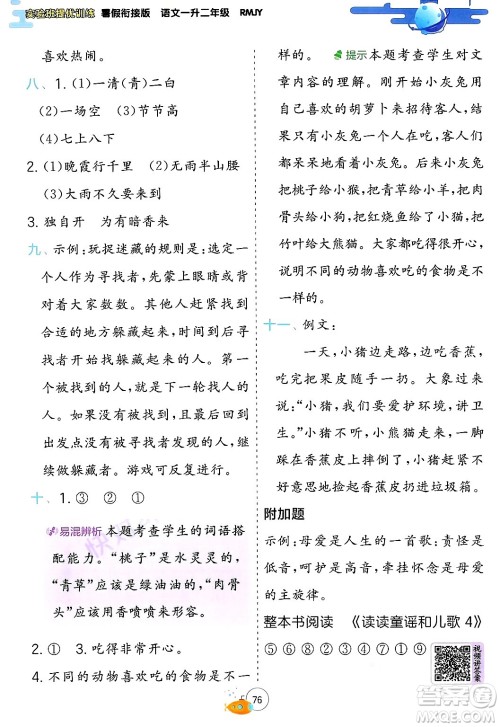 实验班提优训练 暑假衔接版 语文一升二年级 RMJY
喜欢热闹。
八、1. (1)一清(青)二白
(2)一场空 (3)节节高
(4)七上八下
2. (1)晚霞行千里 (2)无雨半山腰
(3)大雨不久要来到
3. 独自开 为有暗香来
九、示例：玩捉迷藏的规则是：选定一
个人作为寻找者，先蒙上眼睛或背
对着大家数数。其他人迅速找到
合适的地方躲藏起来。数到规定
数字后，寻找者开始找人。第一个
被找到的人，成为下一轮找人的
人。如果没有被找到，可以回到
出发点或者被找到的人一起，继
续完成躲藏者。游戏可反复进行。
十、1. ③ ② ①
易混辨析 本题考查学生的词语搭
配能力。“桃子”应是水灵灵的，
“青草”应该是绿油油的，“肉骨
头”应该是香喷喷的。
2. ① 3. 吃得非常开心。
4. 不同的动物喜欢吃的食物是不一
样的。
提示 本题考查学生对文
章内容的理解。刚开始小灰兔
用自己喜欢的胡萝卜来招待客
人，客人都不喜欢。后来小灰兔
把桃子给小猴，把青草给小羊，把肉
骨头给小狗，把红烧鱼给了小猫，把
竹叶给大熊猫。大家都吃得很开心，
说明不同的动物喜欢吃的食物是不
一样的。
十一、例文：
一天，小猪边走路，边吃香蕉，
吃完把果皮随手一扔。大象过来
说：“小猪，我们要爱护环境，讲卫
生。”小猪不听，小熊猫走来，一脚
踩在香蕉皮上，滑倒了。小猪后
悔极了，忙把香蕉皮扔进垃圾箱。
附加题
示例：母爱是人生的一首歌：责怪是
低音，表扬是高音，牵挂怀念是永远
的主旋律。
整本书阅读 《读读童谣和儿歌 4》
⑤⑥⑦⑧ ①②③④⑨
视频讲答案
76